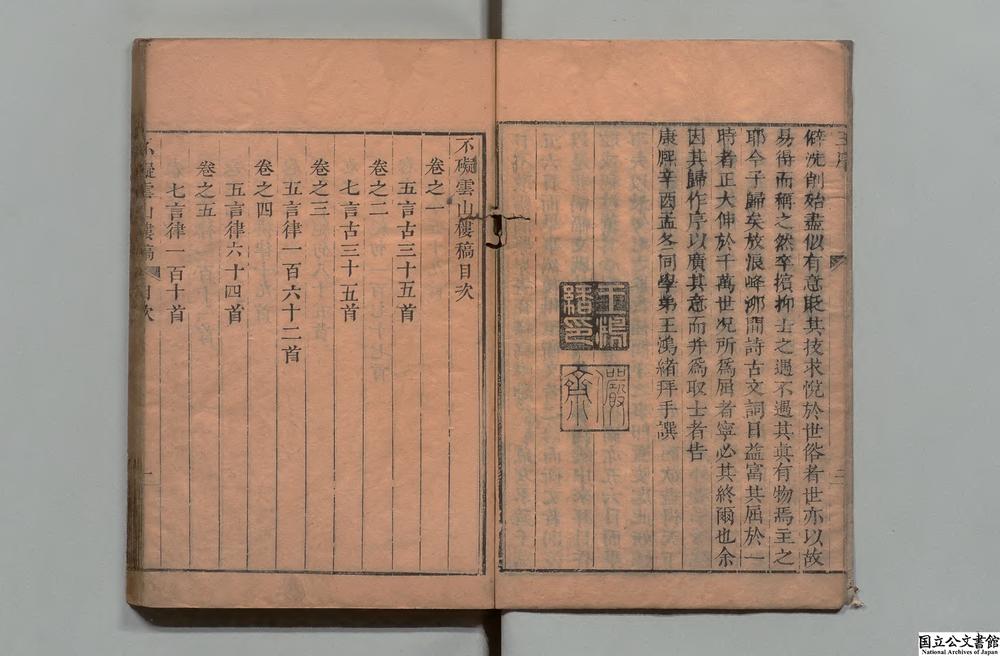 僻洗削殆盡似有意眡其技求悅於世俗者世亦以故
易得而稱之然卒擯抑士之遇不遇其真有物焉主之
耶今子歸矣放浪峰泖間詩古文詞日益富其屈於一
時者正大伸於千萬世况所爲屈者寧必其終爾也余
因其歸作序以廣其意而并爲取士者告
康熙辛酉孟冬同學弟王鴻緒拜手譔
王鴻緒印
儼齋
不礙雲山樓稿目次
卷之一
五言古三十五首
卷之二
七言古三十五首
卷之三
五言律一百六十二首
卷之四
五言律六十四首
卷之五
七言律一百十首
不礙雲山樓稿 目次 一
国立公文書館
National Archives of Japan